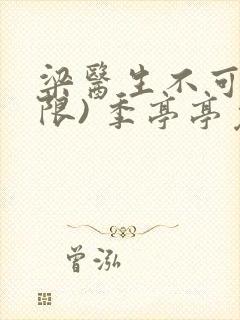 梁醫生不可
限)季亭亭
曾泓